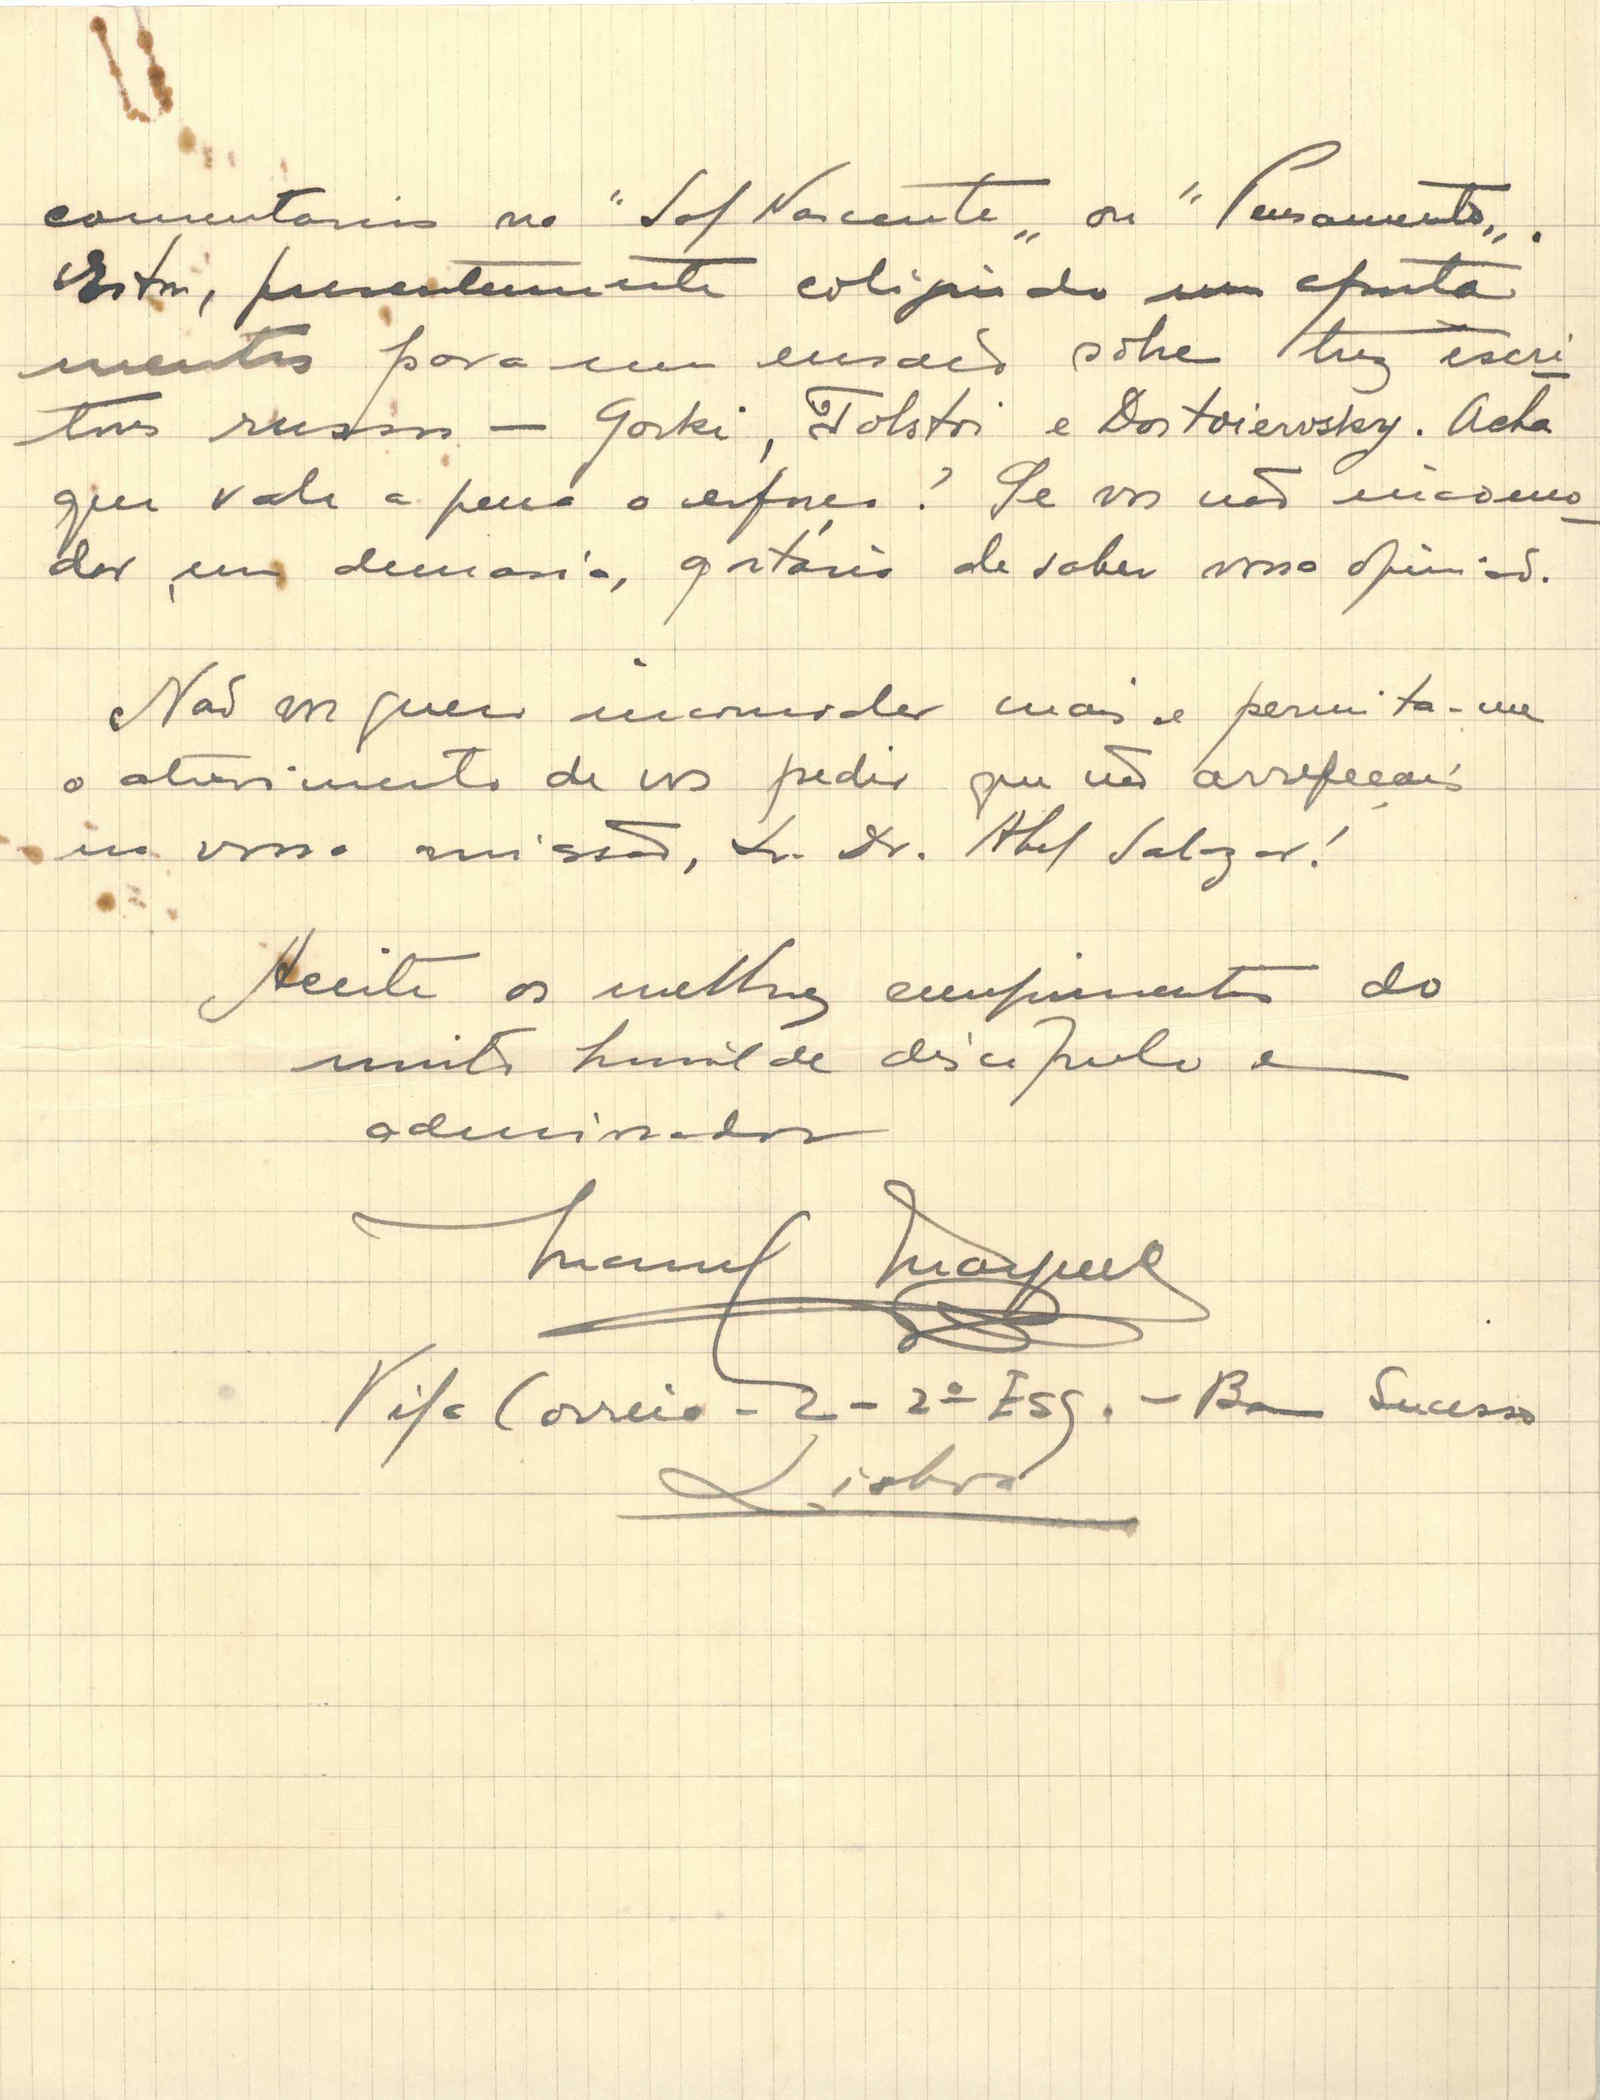 comentarios no "Sol Nascente„ ou "Pensamento„.
Estou, presentemente coligindo uns aponta
mentos para um ensaio sôbre trez escri
tores russos — Gorki, Tolstoi e Dostoievosky. Acha
que vale a pena o esforço? Se vos não incomo_
dar em demasia, gostaria de saber vossa opinião.
Não vos quero incomodar mais e permita-me
o atrevimento de vos pedir que não arrefeçais
na vossa missão, Sr. Dr. Abel Salazar!
Aceite os melhores cumprimentos do
muito humilde discipulo e
admirador
Manuel Marques
Vila Correia - 2 - 2º Esq. - Bom Sucesso
Lisboa